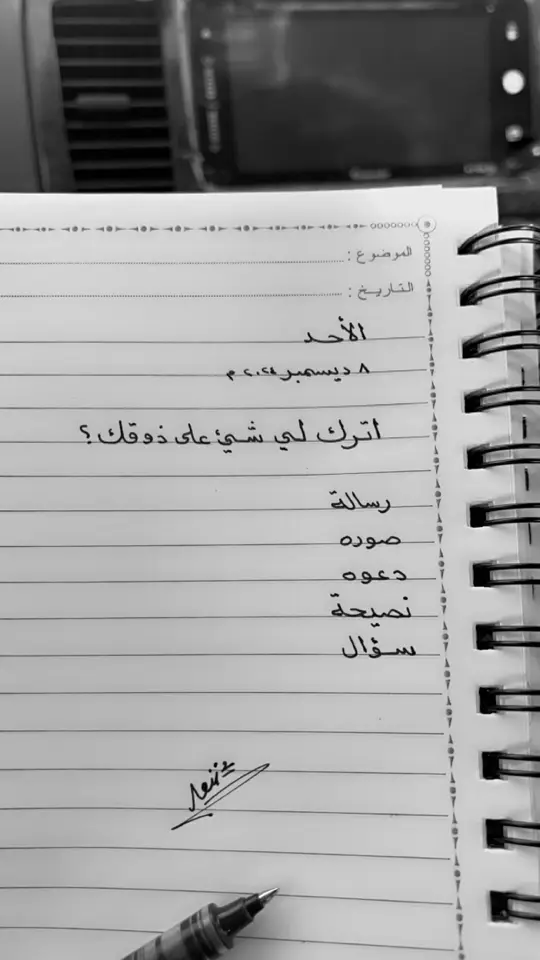 الموضوع :
التاريخ :
الأحد
٨ ديسمبر ٢٠٢٤ م
اترك لي شيئ على ذوقك ؟
رسالة
صوره
دعوه
نصيحة
سؤال